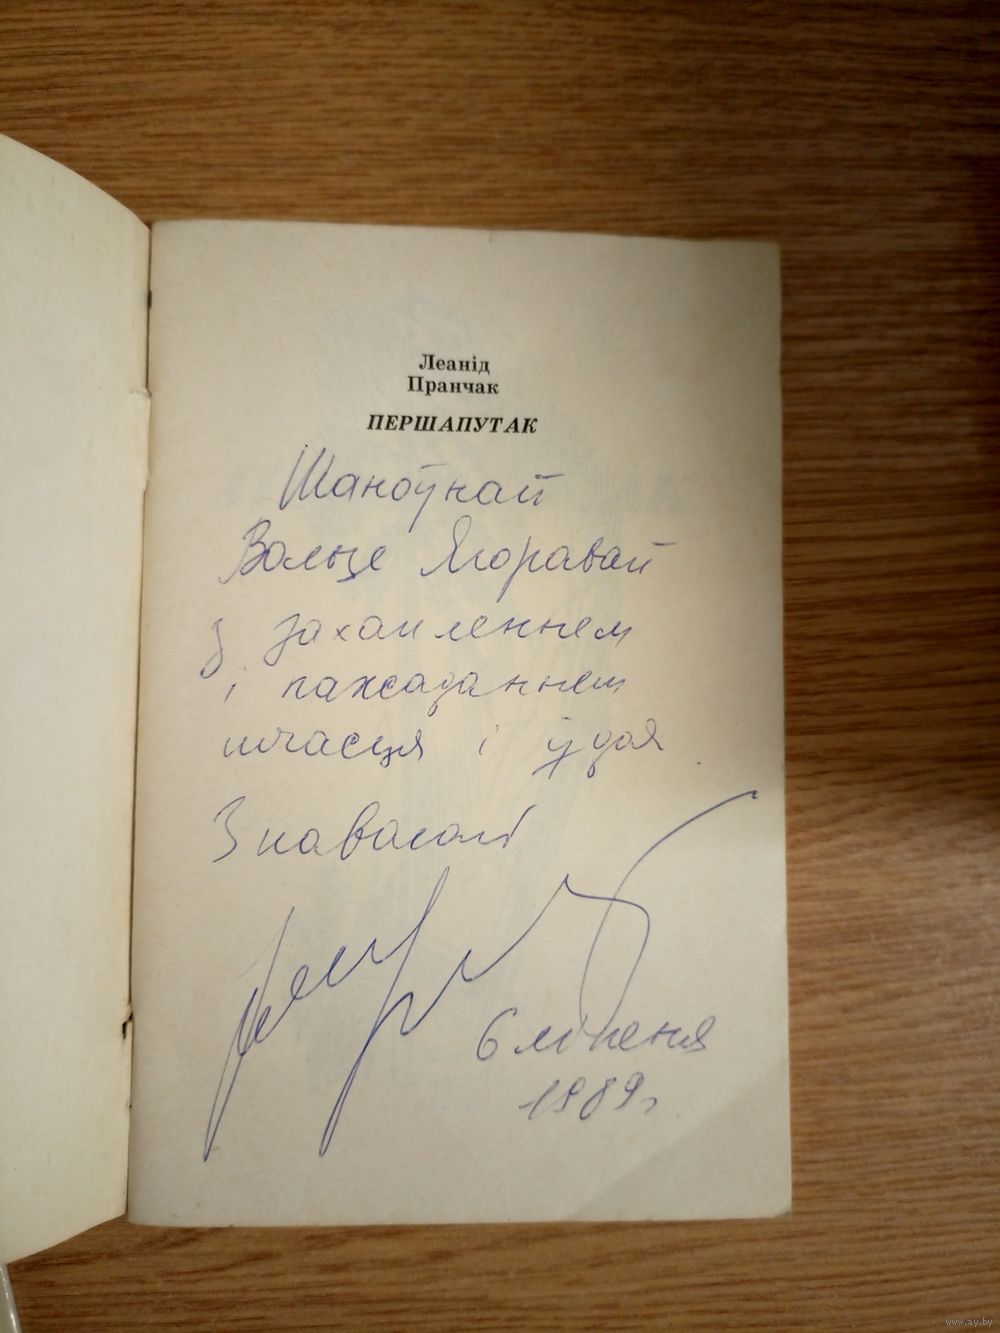 Леанід
Пранчак
ПЕРШАПУТАК
Шаноўнай
Вользе Ягоравай
з захапленнем
і пажаданнем
шчасця і ўдач
З павагаю
6 ліпеня
1989 г.
www.ay.by